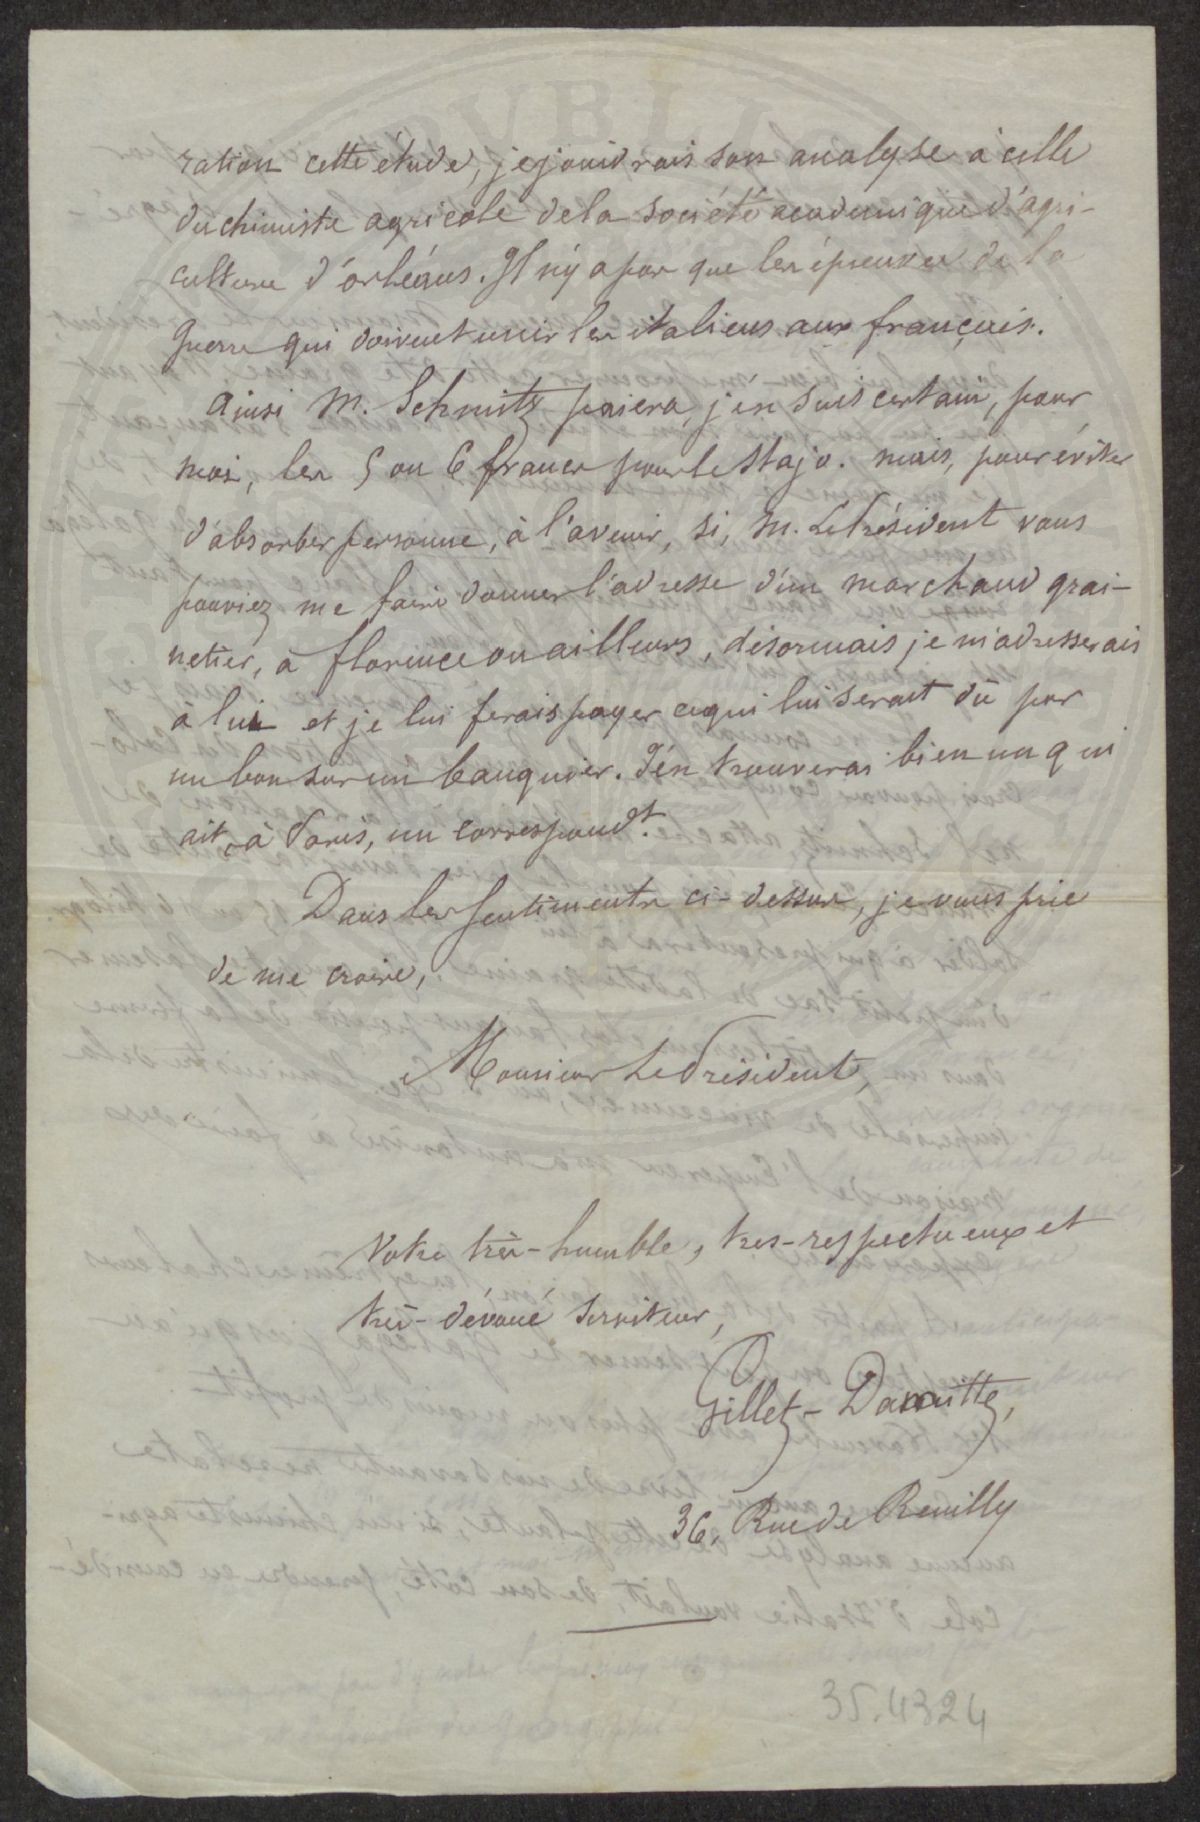 ration cette étude, je joindrais son analyse à celle
du chimiste agricole de la société académique d'agri-
culture d'orléans. Il n'y a pas que les épreuves de la
guerre qui doivent unir les italiens aux français.
Ainsi M. Schmitz paiera, j'en suis certain, pour
moi, les 5 ou 6 francs pour le Stajo. mais, pour éviter
d'absorber personne, à l'avenir, si, M. Le Président vous
pouviez me faire donner l'adresse d'un marchand grai-
netier, à florence ou ailleurs, désormais je m'adresserais
à lui et je lui ferais payer ce qui lui serait dû par
un bon sur un banquier. J'en trouverai bien un qui
ait, à Paris, un correspondt.
Dans les sentiments ci-dessus, je vous prie
de me croire,
Monsieur Le Président,
Votre très-humble, très-respectueux et
très-dévoué serviteur,
Gillet-Damitte,
36, Rue de Reuilly
35.4324